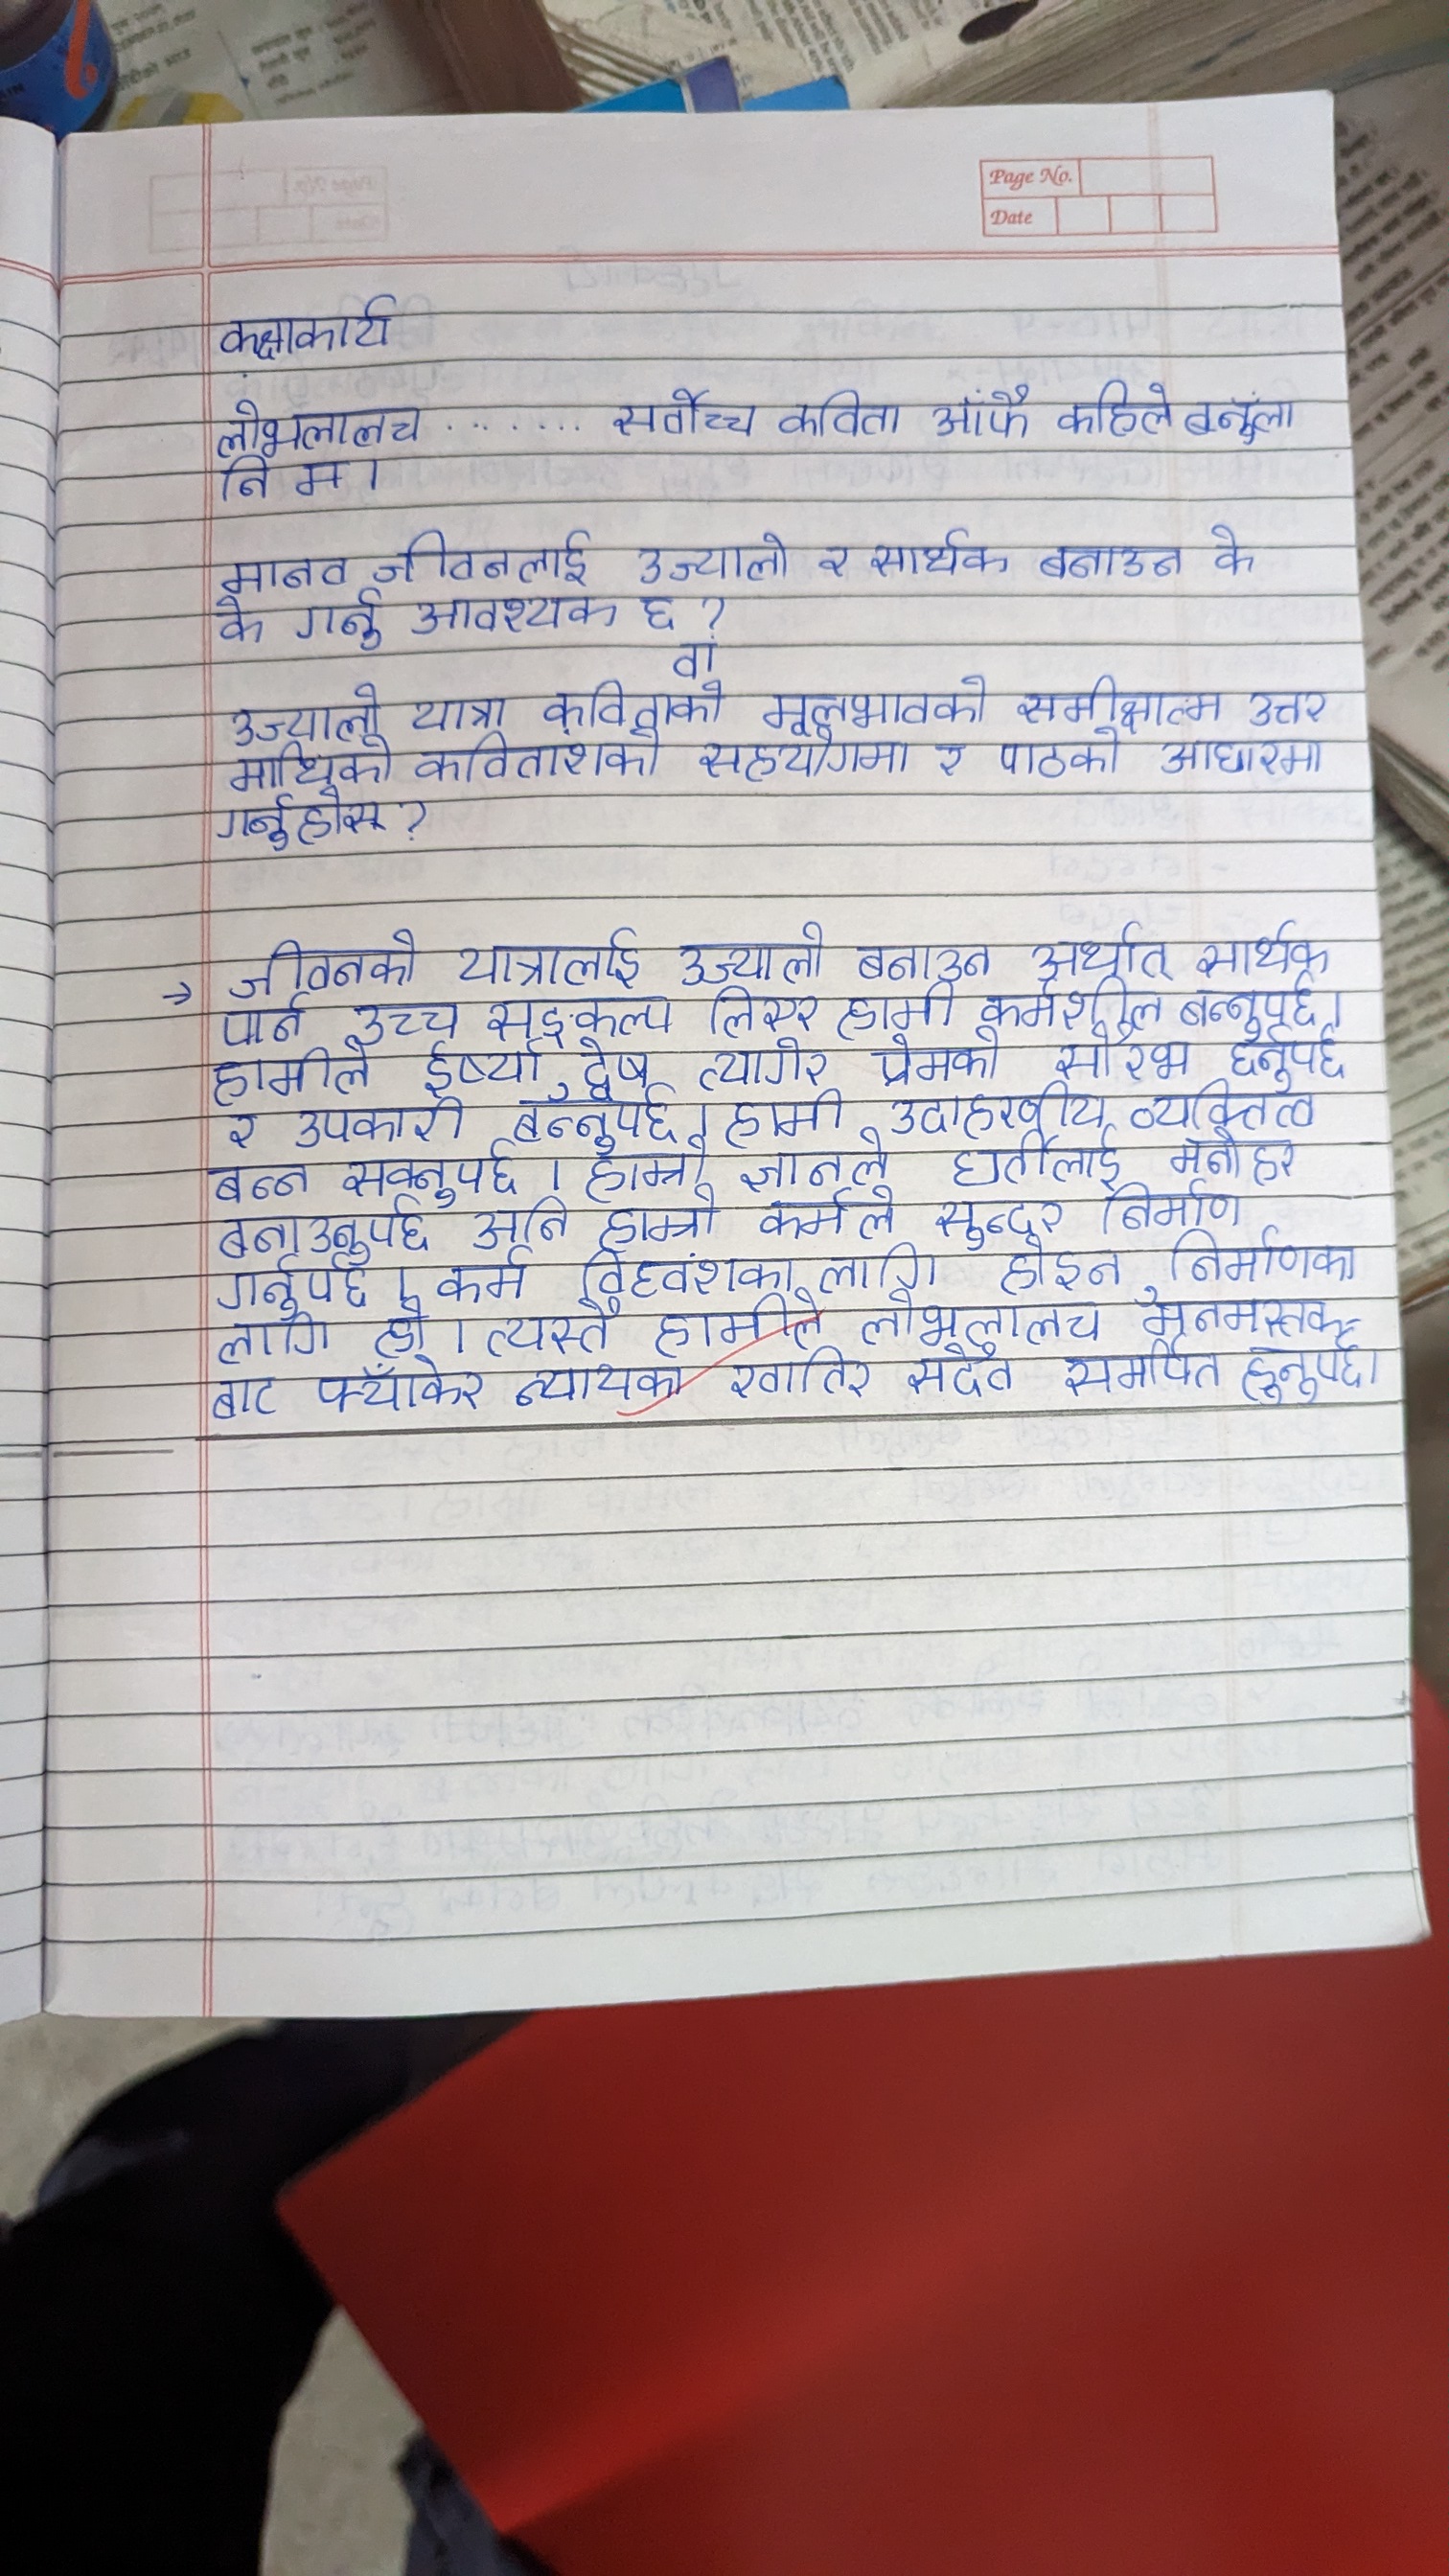 Page No.
Date
कक्षाकार्य
लोभलालच ........ सर्वोच्च कविता आँफै कहिले बनूँला
नि म ।
मानव जीवनलाई उज्यालो र सार्थक बनाउन के
के गर्नु आवश्यक छ ?
वा
उज्यालो यात्रा कविताको मूलभावको समीक्षात्म उत्तर
माथिको कवितांशको सहयोगमा र पाठको आधारमा
गर्नुहोस् ?
→ जीवनको यात्रालाई उज्यालो बनाउन अर्थात् सार्थक
पार्न उच्च सङ्कल्प लिएर हामी कर्मशील बन्नुपर्छ।
हामीले ईर्ष्या, द्वेष त्यागेर प्रेमको सौरभ छर्नुपर्छ
र उपकारी बन्नुपर्छ । हामी उदाहरणीय व्यक्तित्व
बन्न सक्नुपर्छ । हाम्रो ज्ञानले धर्तीलाई मनोहर
बनाउनुपर्छ अनि हाम्रो कर्मले सुन्दर निर्माण
गर्नुपर्छ । कर्म विध्वंशका लागि होइन, निर्माणका
लागि हो । त्यस्तै हामीले लोभलालच मनमस्तक-
बाट फ्याँकेर न्यायका खातिर सदैव समर्पित हुनुपर्छ।